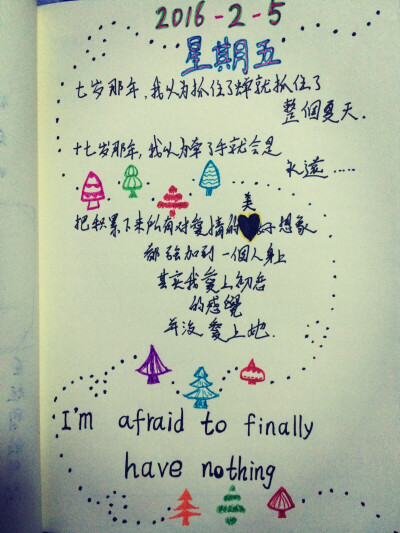 2016-2-5
星期五
七岁那年，我以为抓住了蝉就抓住了
整個夏天.
十七岁那年，我以为牵了手就会是
永遠……
把积累下来所有对愛情的美好想象
都强加到一個人身上
其实我愛上初恋
的感覺
并没愛上她.
I'm afraid to finally
have nothing